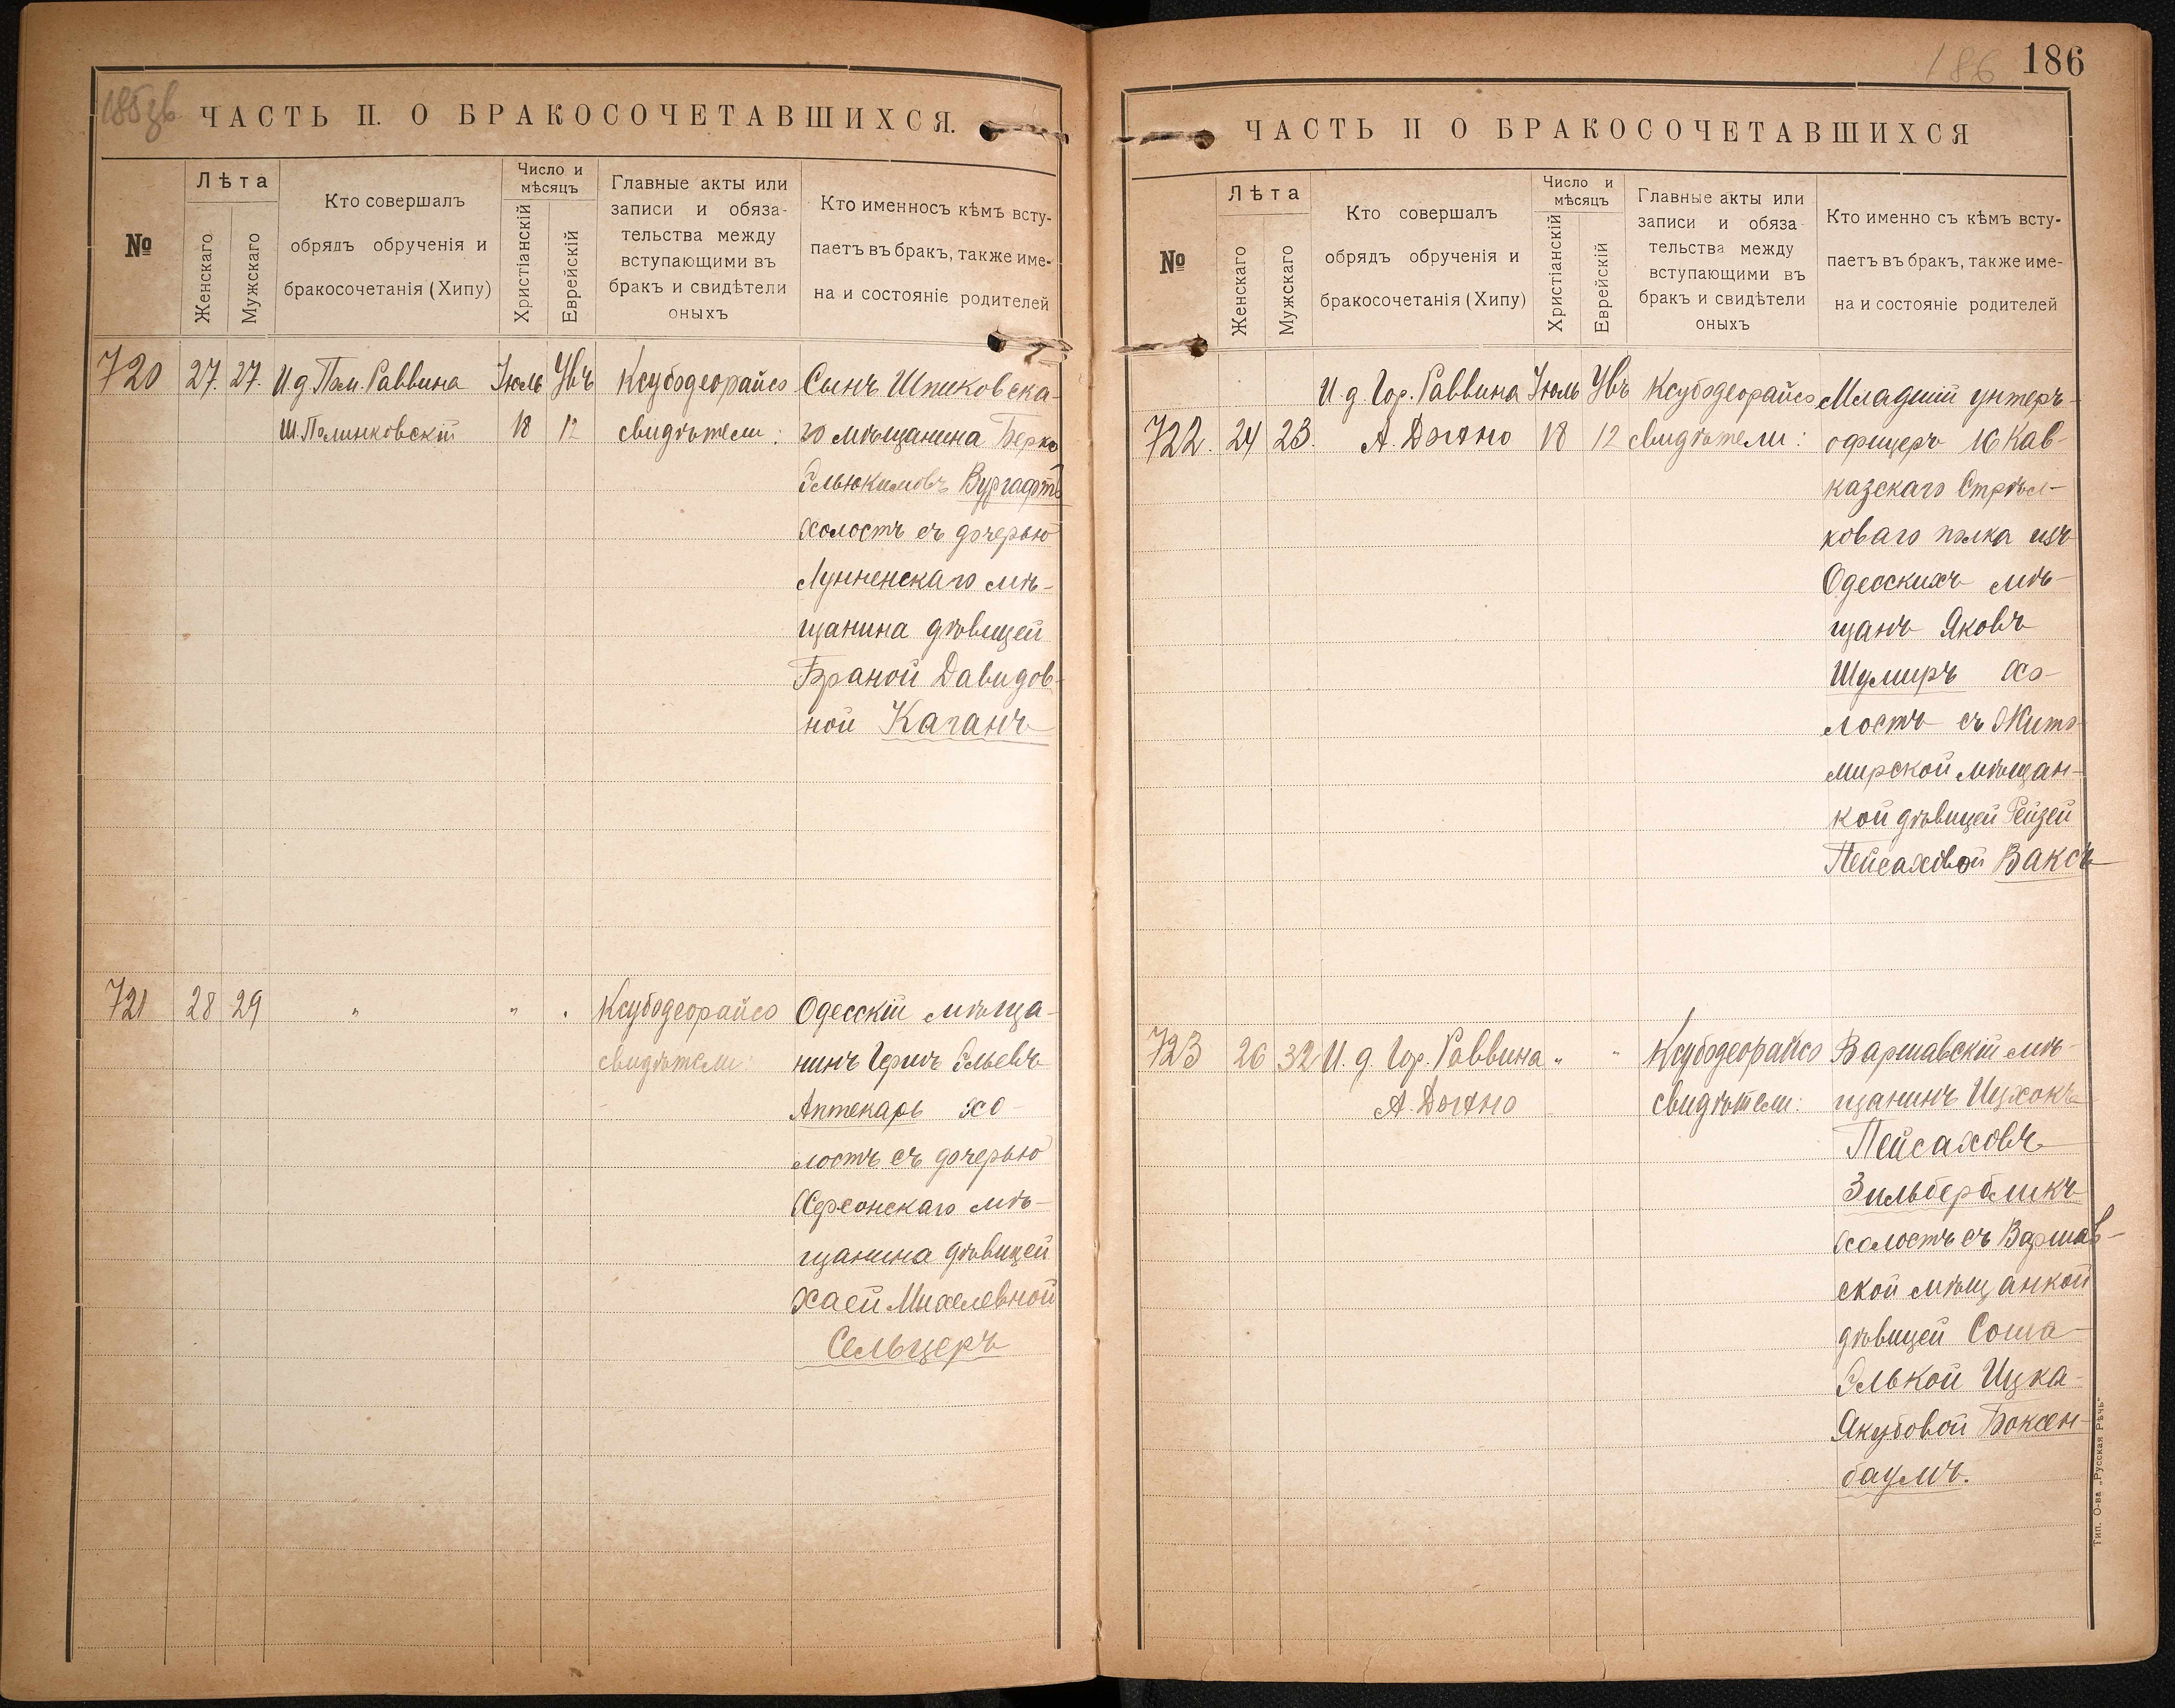 185зв
ЧАСТЬ II. О БРАКОСОЧЕТАВШИХСЯ.
№
Лѣта
Женскаго
Мужскаго
Кто совершалъ
обрядъ обрученія и
бракосочетанія (Хипу)
Число и
мѣсяцъ
Христіанскій
Еврейскій
Главные акты или
записи и обяза-
тельства между
вступающими въ
бракъ и свидѣтели
оныхъ
Кто именносъ кѣмъ всту-
паетъ въ бракъ, также име-
на и состояніе родителей
720 27. 27. И.д. Пом. Раввина Іюль Увъ Ксубодеорайсо Сынъ Шпиковска-
Ш. Полинковскій 18 12 свидѣтели: го мѣщанина Берко
Эльюкимовъ Вургафтъ
холостъ съ дочерью
Лунненскаго мѣ-
щанина дѣвицей
Браной Давидов-
ной Каганъ
721 28 29 " " " Ксубодеорайсо Одесскій мѣща-
свидѣтели: нинъ Гершъ Эльевъ
Аптекарь хо-
лостъ съ дочерью
Херсонскаго мѣ-
щанина дѣвицей
Хаей Михелевной
Сельцеръ
186 186
ЧАСТЬ II О БРАКОСОЧЕТАВШИХСЯ
№
Лѣта
Женскаго
Мужскаго
Кто совершалъ
обрядъ обрученія и
бракосочетанія (Хипу)
Число и
мѣсяцъ
Христіанскій
Еврейскій
Главные акты или
записи и обяза-
тельства между
вступающими въ
бракъ и свидѣтели
оныхъ
Кто именно съ кѣмъ всту-
паетъ въ бракъ, также име-
на и состояніе родителей
И.д. Гор. Раввина Іюль Увъ Ксубодеорайсо Младшій унтеръ-
722. 24 23. А. 18 12 свидѣтели: офицеръ 16 Кав-
казскаго Стрѣл-
коваго полка изъ
Одесскихъ мѣ-
щанъ Яковъ
Шумиръ хо-
лостъ съ Жито-
мирской мѣщан-
кой дѣвицей Рейзей
Пейсаховой Ваксъ
723 26 32 И.д. Гор. Раввина " " Ксубодеорайсо Варшавскій мѣ-
А. свидѣтели: щанинъ Ицхокъ
Пейсаховъ
Зильбербликъ
холостъ съ Варшав-
ской мѣщанкой
дѣвицей Соша-
Элькой Ицка-
Якубовой Боксен-
баумъ.
Тип. О-ва „Русская Рѣчь"